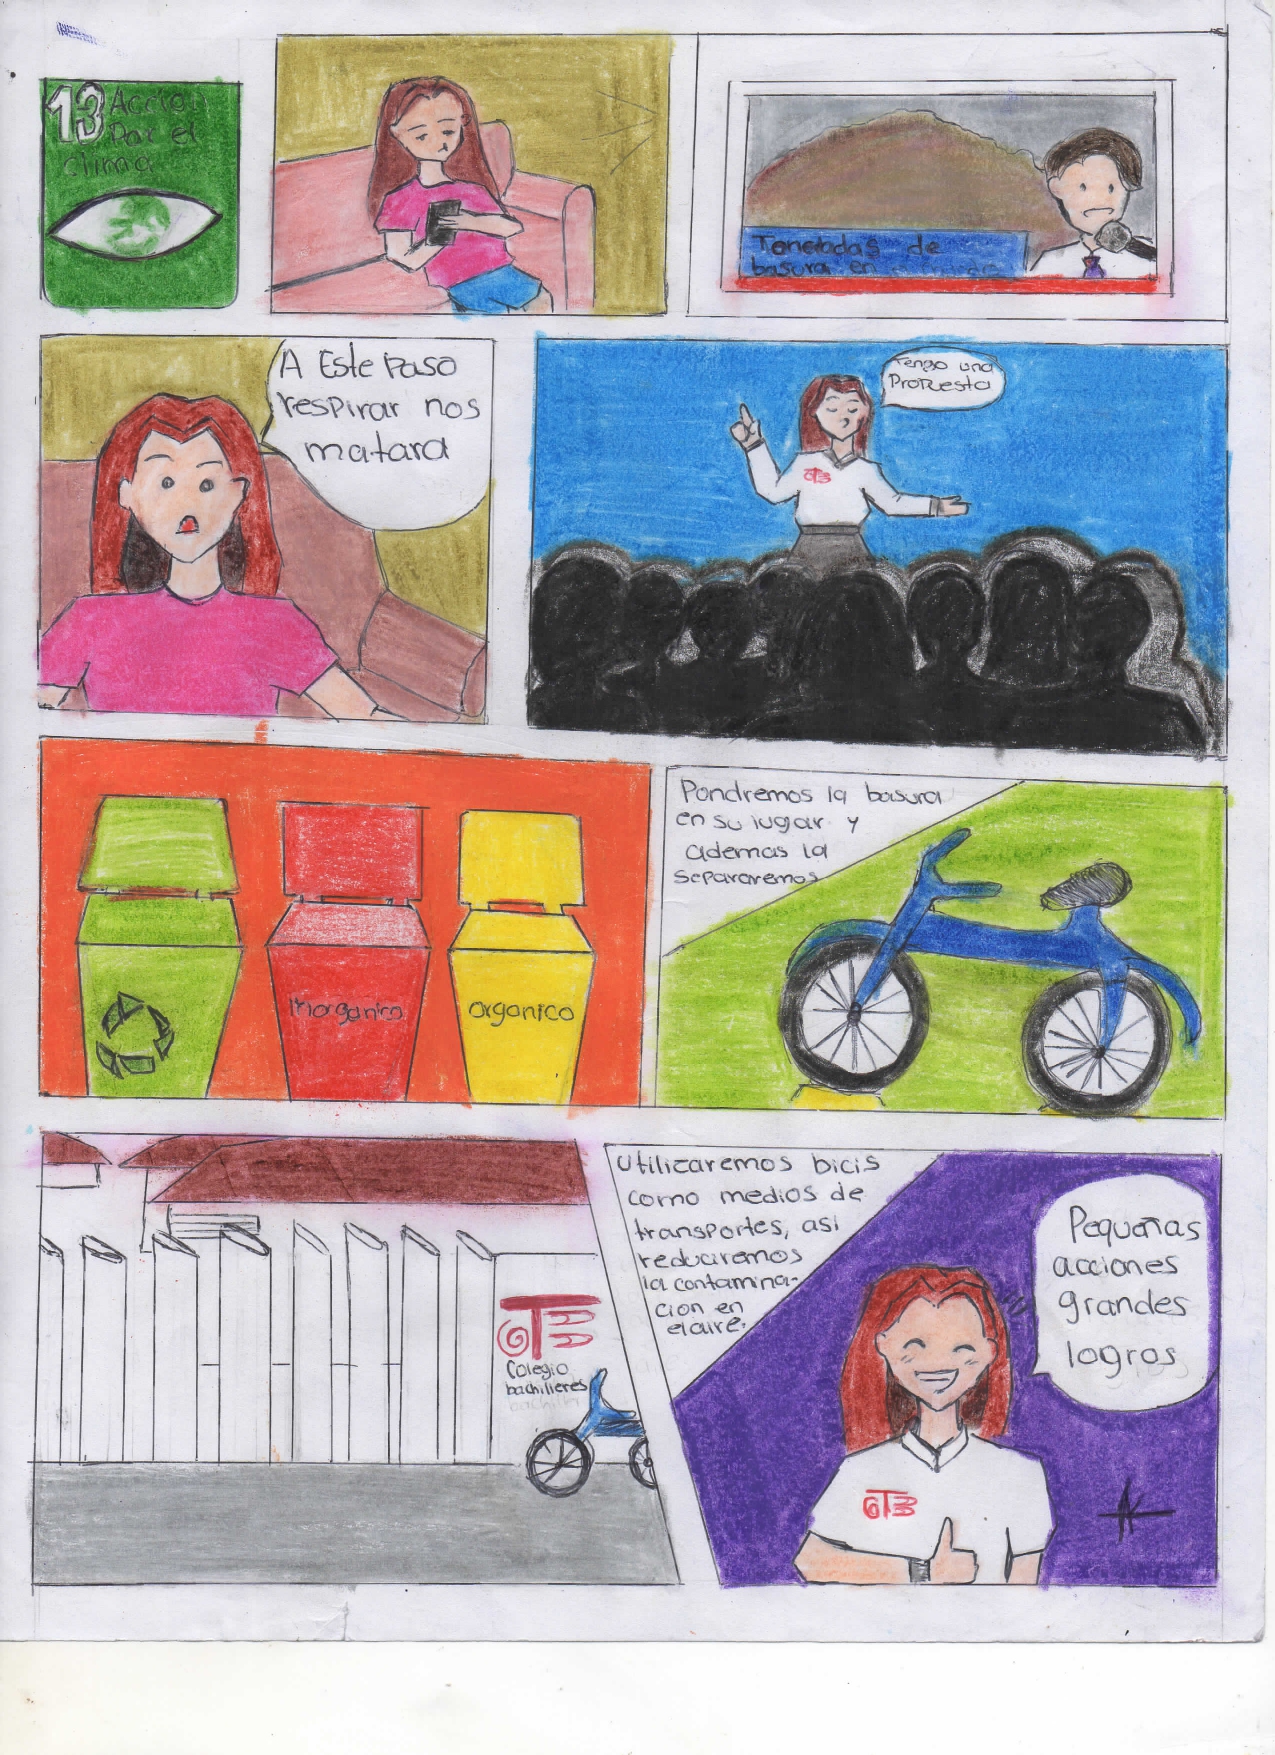 13 Accion
Por el
clima
Toneladas de
basura en
A Este paso
respirar nos
matara
Tengo una
Propuesta
Inorganico
organico
Pondremos la basura
en su lugar y
ademas la
separaremos
Colegio
bachilleres
utilizaremos bicis
como medios de
transportes, asi
reduciremos
la contamina-
cion en
elaire.
Pequeñas
acciones
grandes
logros